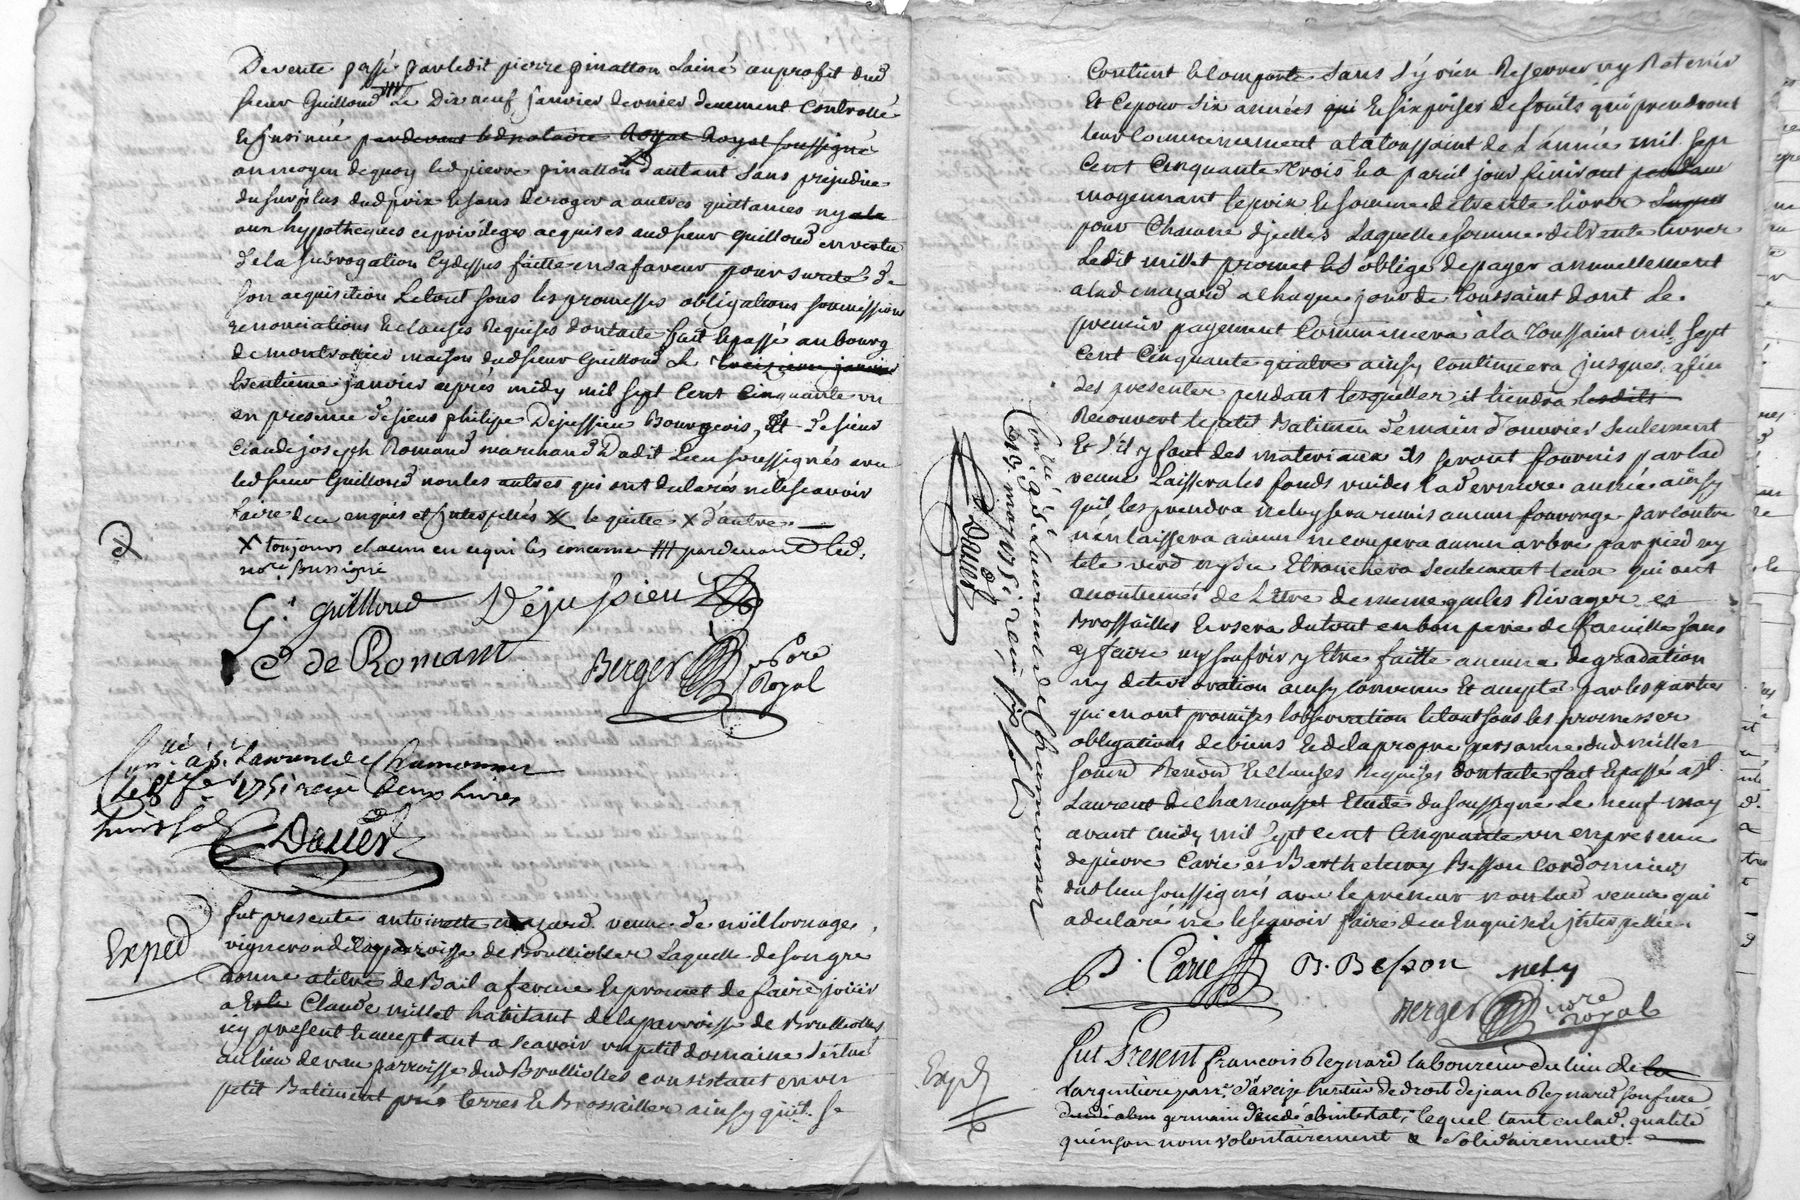 De vente passé par ledit pierre pinatton Lainé au profit dud
sieur Guilloud le Dix neuf janvier dernier deuement Controllé
et insinué pardevant led notaire Royal Royal soussigné
au moyen de quoy led pierre pinatton d'autant sans prejudice
du surplus dud prix et sans deroger a autres quittances ny
aux hypotheques et privileges acquises aud sieur Guilloud en vertu
de la subrogation cydessus faitte en sa faveur pour sureté de
son acquisition Le tout sous les promesses obligations soumissions
renonciations et clauses Requises dont acte fait et passé au bourg
de montrottier maison dud sieur Guilloud Le treizieme janvier
trentieme janvier aprés midy mil sept cent cinquante un
en presence de sieur philipe Dejussieu Bourgeois, Et de sieur
Claude joseph Romand marchand Dudit Lieu soussignés avec
led sieur Guilloud non les autres qui ont declarés ne le scavoir
faire de ce enquis et interpellés X le quitte X d'autre
X toujours chacun en ce qui les concerne /// pardevant led.
nore soussigné
G. guilloud Dejussieu
C de Romant
Berger nore
Royal
Con.llé à St Laurent de Chamousset
le 1751 reçu deux livres
huit sols
Dauer
Exped
fut presente antoinette mazard veuve de noël
vigneron de la parroisse de Brulliolles Laquelle de son gré
donne a titre de Bail a ferme et promet de faire jouir
a Claude millet habitant de la parroisse de Brulliolles
icy present et acceptant a scavoir un petit domaine scitué
au lieu de parroisse dud Brulliolles consistant en un
petit Batiment prés terres et Brossailles ainsy qu'il se
Contient et comporte sans s'y rien Reserver ny Retenir
Et ce pour six années qui et six prises de fruits qui prendront
leur commencement a la toussaint de l'année mil sept
cent cinquante trois et a pareil jour finiront
moyennant le prix et somme de trente livres
pour Chacune d'jcelles Laquelle somme de trente livres
Ledit millet promet et s'oblige de payer annuellement
a lad mazard a chaque jour de Toussaint dont Le
premier payement Commencera à la Toussaint mil sept
cent cinquante quatre ainsy continuera jusques a fin
des presentes pendant lesquelles il tiendra lesdits
Recouvert le petit Batiment de main d'ouvrier seulement
Et s'il y faut des materiaux ils seront fournis par lad
veuve Laissera les fonds vuides la derniere année ainsy
qu'il les prendra ne luy sera remis aucun fourrage par contre
n'en laissera aucun ne coupera aucun arbre par pied ny
tete verd ny sec Ebranchera seulement ceux qui ont
accoutumés de L'etre de meme que les Rivages et
Brossailles Et usera du tout en bon pere de famille sans
y faire ny soufrir y Etre faitte aucune degradation
ny deterioration ainsy convenu Et accepté par les parties
qui en ont promises l'observation le tout sous les promesses
obligations de biens et de la propre personne dud millet
soumd Renond Et clauses Requises dont acte fait et passé a St
Laurent de chamousset Etude du soussigné Le neuf may
avant midy mil sept cent cinquante un en presence
de pierre Carie et Barthelemy Besson cordonniers
dud lieu soussignés avec le preneur non lad veuve qui
a declaré ne le scavoir faire de ce Enquise et jnterpellée
P. Carie B. Besson
Berger nore
Royal
Con.llé à St Laurent de Chamousset
le 19 may 1751 reçu six sols
Dauer
Exped
fut Present francois Reynard laboureur du lieu de la
Largentiere parr. d'aveize heritier de droit de jean Reynard son frere
germain decedé abintestat, lequel tant en lad. qualité
qu'en son nom volontairement & solidairement